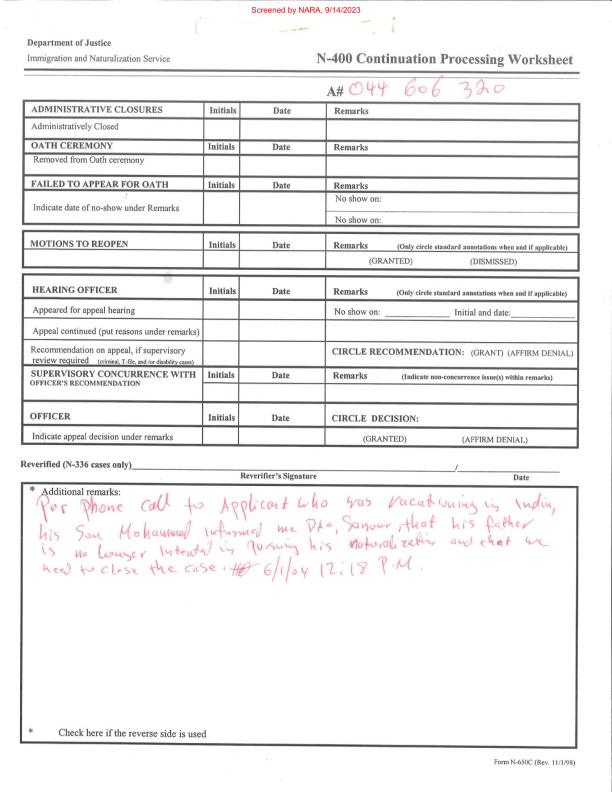 Screened by NARA, 9/14/2023
Department of Justice
Immigration and Naturalization Service
N-400 Continuation Processing Worksheet
A# 044 606 320
ADMINISTRATIVE CLOSURES Initials Date Remarks
Administratively Closed
OATH CEREMONY Initials Date Remarks
Removed from Oath ceremony
FAILED TO APPEAR FOR OATH Initials Date Remarks
Indicate date of no-show under Remarks
No show on:
No show on:
MOTIONS TO REOPEN Initials Date Remarks (Only circle standard annotations when and if applicable)
(GRANTED) (DISMISSED)
HEARING OFFICER Initials Date Remarks (Only circle standard annotations when and if applicable)
Appeared for appeal hearing No show on: Initial and date:
Appeal continued (put reasons under remarks)
Recommendation on appeal, if supervisory
review required (criminal, T-file, and /or disability cases)
CIRCLE RECOMMENDATION: (GRANT) (AFFIRM DENIAL)
SUPERVISORY CONCURRENCE WITH Initials Date Remarks (Indicate non-concurrence issue(s) within remarks)
OFFICER'S RECOMMENDATION
OFFICER Initials Date CIRCLE DECISION:
Indicate appeal decision under remarks (GRANTED) (AFFIRM DENIAL)
Reverified (N-336 cases only) /
Reverifier's Signature Date
* Additional remarks:
Per phone call to Applicant who was vacationing in India,
his Son Mohammed informed me DAO, that his father
is no longer in his naturalization and that we
need to close the case. 6/1/04 12:18 P.M.
* Check here if the reverse side is used
Form N-650C (Rev. 11/1/98)